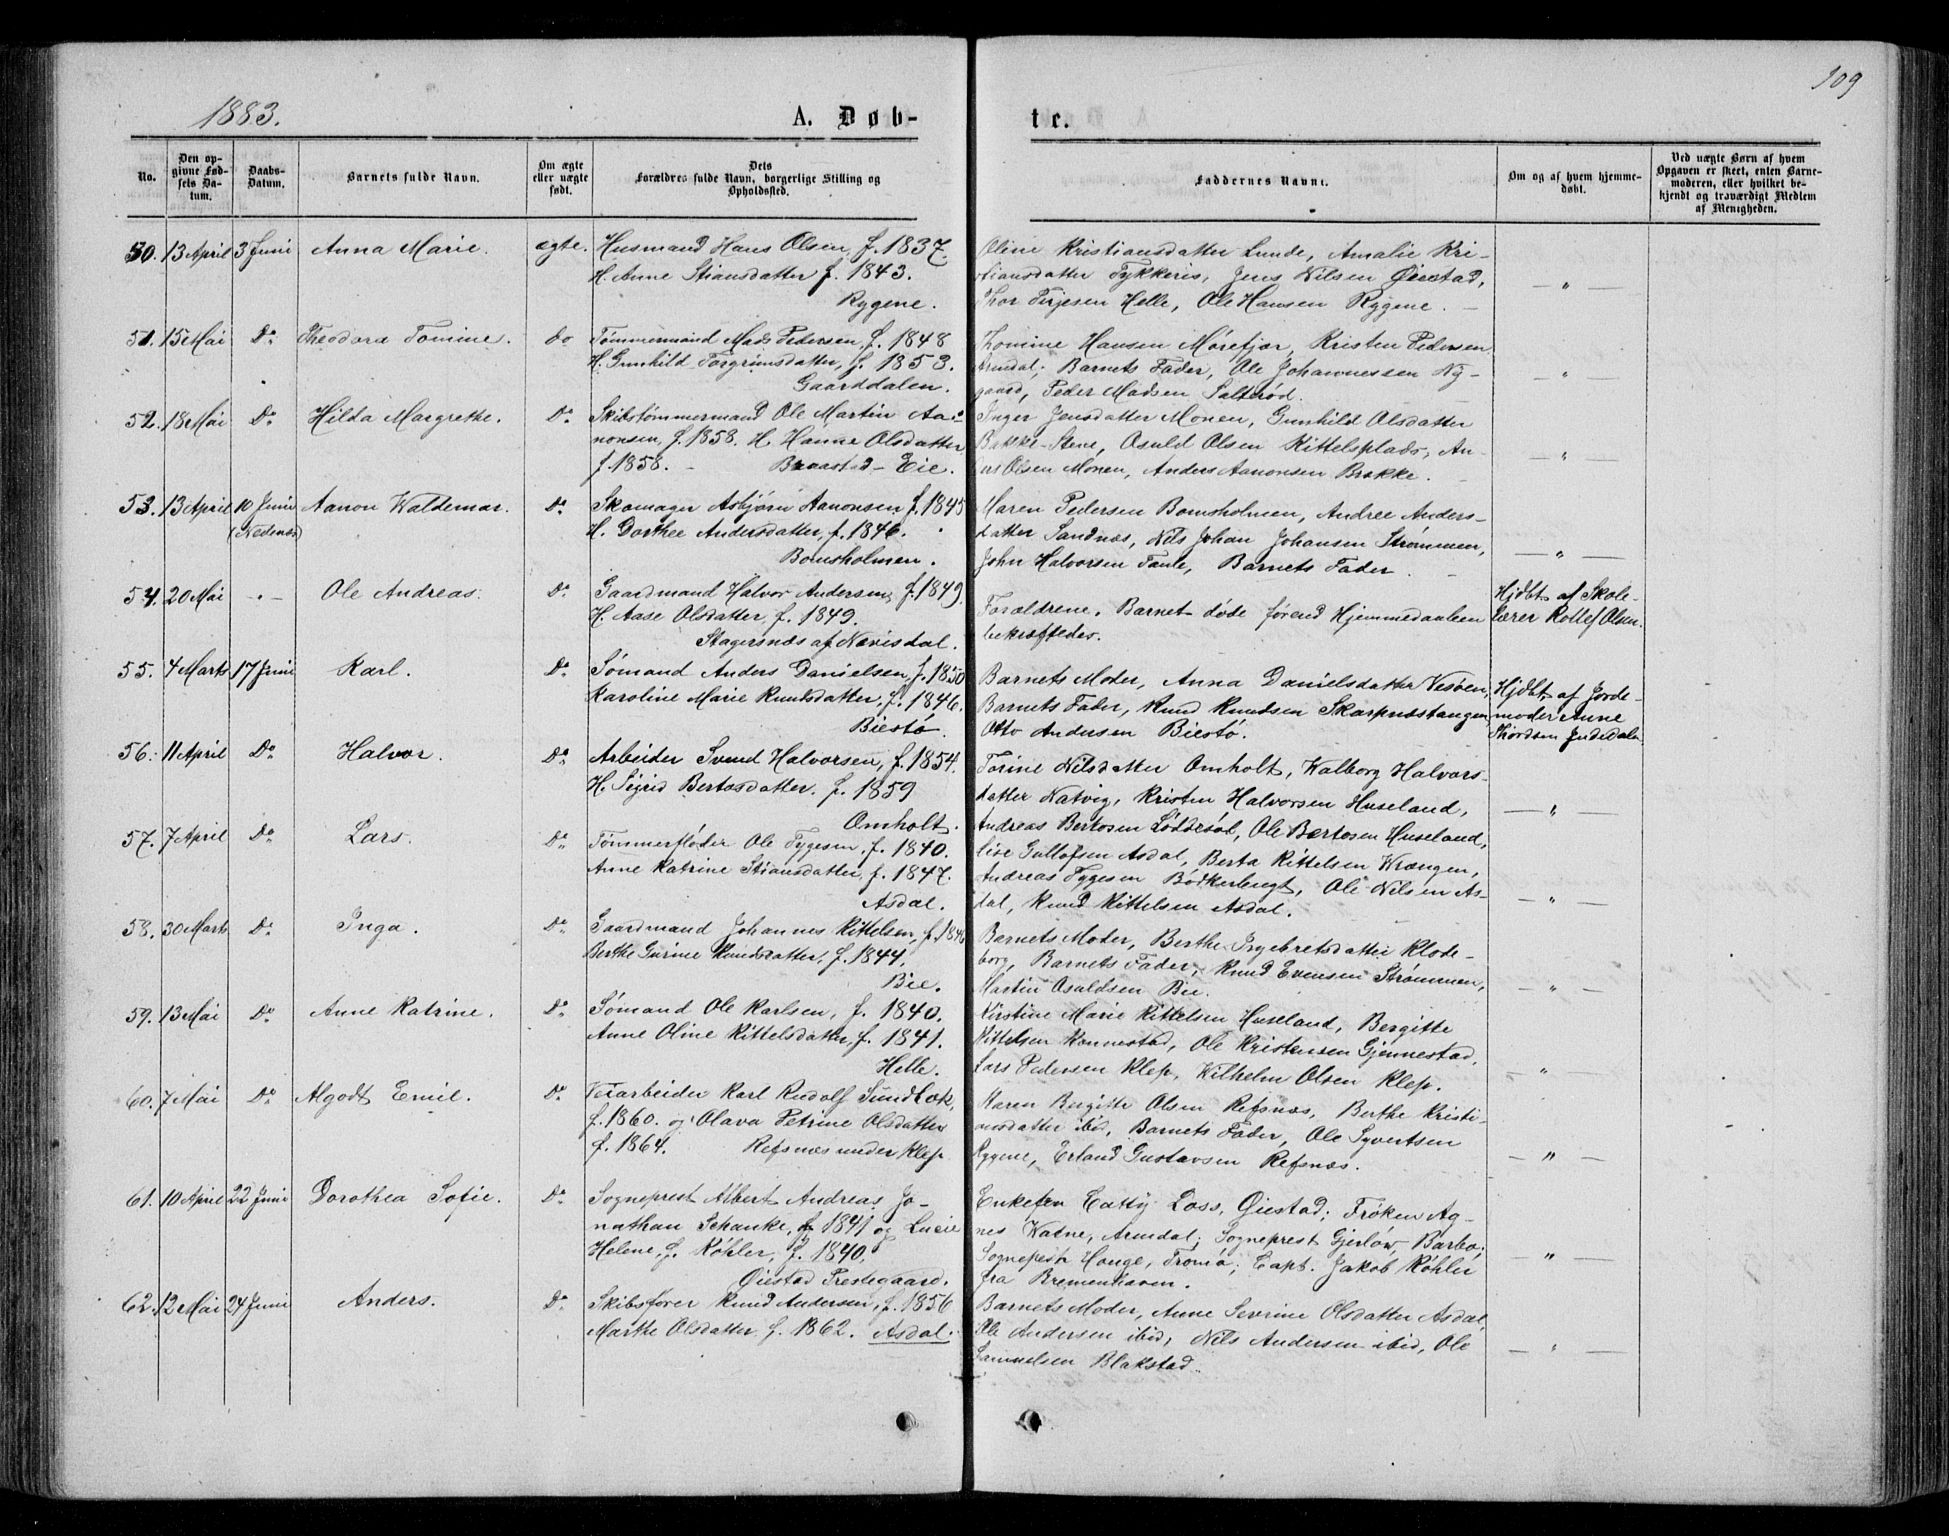 109
1883.
A. Døb-
te.
No.
Den op-
givne Fød-
sels Da-
tum.
Daabs-
Datum.
Barnets fulde Navn.
Om ægte
eller uægte
født.
Dets
Forældres fulde Navn, borgerlige Stilling og
Opholdssted.
Faddernes Navne.
Om og af hvem hjemme-
døbt.
Ved uægte Børn af hvem
Opgaven er skeet, enten Barne-
moderen, eller hvilket be-
kjendt og troværdigt Medlem
af Menigheden.
50. 13 April 3 Juni Anna Marie. ægte. Husmand Hans Olsen, f. 1837.
H. Anne Stiansdatter f. 1843.
Rygene.
Oline Kristiansdatter Lunde, Amalie Kri-
stiansdatter Tykkeris, Jens Nilsen Øiestad,
Thor Terjesen Helle, Ole Hansen Rygene. — " —
51. 15 Mai Do Theodora Tomine. do Tømmermand Mads Pedersen, f. 1848
H. Gunhild Torgrimsdatter, f. 1853.
Gaarddalen.
Thomine Hansen Mørefjær, Kristen Pedersen
Arendal; Barnets Fader, Ole Johannessen Ny-
gaard, Peder Madsen Salterød. " —
52. 18 Mai Do Hilda Margrethe. Do Skibstømmermand Ole Martin Aa-
nonsen, f. 1858. H. Hanne Olsdatter
f. 1858. - Braastad-Eie.
Inger Jensdatter Monen, Gunhild Olsdatter
Bakke-Stene, Osuld Olsen Kittelsplads, An-
ders Olsen Monen, Anders Aanonsen Brække. — " —
53. 13 April 10 Juni Aanon Waldemar. Do Skomager Asbjørn Aanonsen f. 1845
(Nedenæs) H. Dorthee Andersdatter, f. 1846.
Bomsholmen.
Maren Pedersen Bomsholmen, Andree Anders-
datter Sandnæs, Nils Johan Johansen Strømmen,
John Halvorsen Tanle, Barnets Fader. — " —
54. 20 Mai - - Ole Andreas. Do Gaardmand Halvor Andersen, f. 1849.
H. Aase Olsdatter, f. 1849.
Stagersnæs af Nævisdal.
Forældrene. Barnet døde førend Hjemmedaaben
bekræftedes.
Hjdbt af Skole-
lærer Rollef Olsen.
55. 4 Marts 17 Juni Karl. Do Sømand Anders Danielsen, f. 1850
Karoline Marie Knudsdatter, f. 1846.
Biestø.
Barnets Moder, Anna Danielsdatter Vesøen,
Barnets Fader, Knud Knudsen Skarpnæstangen
Otto Andersen Biestø.
Hjdbt af Jorde-
moder Anne
Thordsen
56. 11 April Do Halvor. Do Arbeider Svend Halvorsen, f. 1854.
H. Sigrid Bertosdatter. f. 1859
Omholt.
Torine Nilsdatter Omholt, Walborg Halvors-
datter Natvig, Kristen Halvorsen Huseland,
Andreas Bertosen Løddesøl, Ole Bertosen Huseland, — " —
57. 7 April Do Lars. Do Tømmerfløder Ole Tygesen, f. 1840.
Anne Katrine Stiansdatter, f. 1847.
Asdal.
Lise Gullofsen Asdal, Berta Kittelsen Wrængen,
Andreas Tygesen Bødkerbugt, Ole Nilsen As-
dal, Knud Kittelsen Asdal. — " —
58. 30 Marts Do Inga. Do Gaardmand Johannes Kittelsen, f. 1846
Berthe Gurine Knudsdatter, f. 1844.
Bie.
Barnets Moder, Berthe Ingebretsdatter Klode-
borg, Barnets Fader, Knud Evensen Strømmen,
Martin Osuldsen Bie. — " —
59. 13 Mai Do Anne Katrine. Do Sømand Ole Karlsen, f. 1840.
Anne Oline Kittelsdatter, f. 1841.
Helle.
Kirstine Marie Kittelsen Huseland, Bergitte
Kittelsen Rønnestad, Ole Kristensen Gjennestad,
Lars Pedersen Klep, Wilhelm Olsen Klep. — " —
60. 7 Mai Do Algodt Emil. Do Veiarbeider Karl Rudolf Sundbæk,
f. 1860. og Olava Petrine Olsdatter
f. 1864. Refsnæs under Klep
Karen Bergitte Olsen Refsnæs, Berthe Kristi-
ansdatter ibid, Barnets Fader, Ole Syvertsen
Rygene, Erland Gustavsen Refsnæs. — " —
61. 10 April 22 Juni Dorothea Sofie. Do Sogneprest Albert Andreas Jo-
nathan Schanke, f. 1841 og Lucie
Helene, f. Køhler, f. 1840.
Øiestad Prestegaard.
Enkefru Catty Loss, Øiestad; Frøken Ag-
nes Watne, Arendal; Sogneprest Gjerløw, Barbo;
Sogneprest Hauge, Tromø; Capt. Jakob Køhler
fra Bremenhaven. — " —
62. 12 Mai 24 Juni Anders. Do Skibsfører Knud Andersen, f. 1856
Marthe Olsdatter f. 1862. Asdal.
Barnets Moder, Anne Severine Olsdatter Asdal,
Ole Andersen ibid, Nils Andersen ibid, Ole
Samuelsen Blakstad. — " —